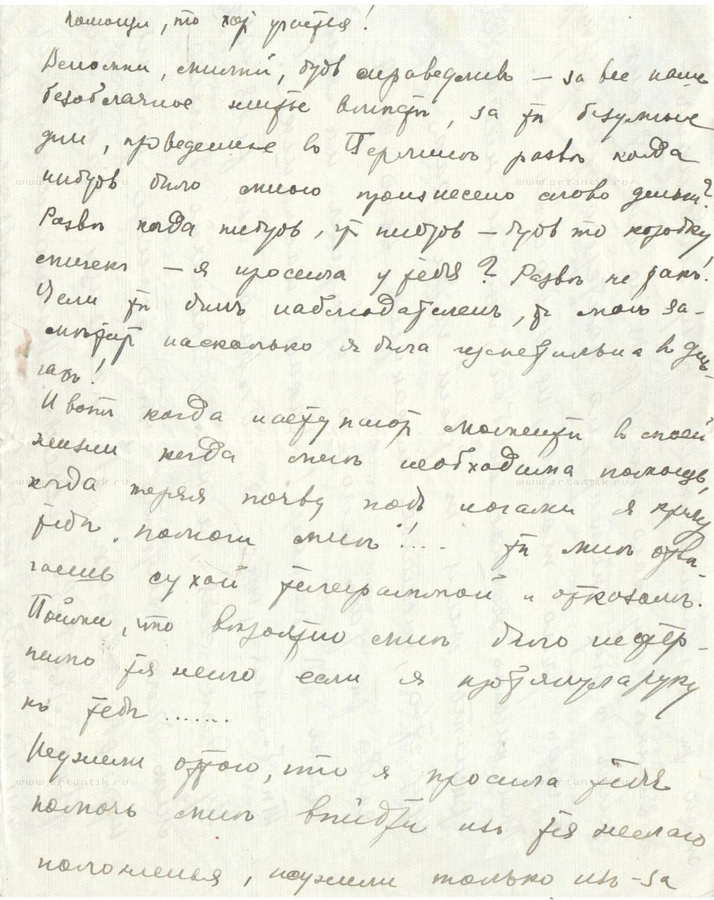 помощи, то хоть участья!
Вспомни, милый, будь справедливъ – за все наше
безоблачное житье вмѣстѣ, за тѣ безумные
дни, проведенные въ Берлинѣ развѣ когда
нибудь было мною произнесено слово деньги?
Развѣ когда нибудь, что нибудь – будь то коробку
спичекъ – я просила у тебя? Развѣ не такъ!
Если ты былъ наблюдателенъ, ты могъ за-
мѣтить насколько я была щепетильна въ день-
гахъ!
И вотъ когда наступилъ моментъ въ моей
жизни когда мнѣ необходима помощь,
когда теряя почву подъ ногами я кричу
тебѣ, помоги мнѣ!... ты мнѣ отвѣ-
чаешь сухой телеграммой и отказомъ.
Пойми, что вѣроятно мнѣ было нестер-
пимо тяжело если я протянула руку
къ тебѣ .......
Неужели оттого, что я просила тебя
помочь мнѣ выйдти изъ тяжелаго
положенья, неужели только изъ-за
www.artantik.ru